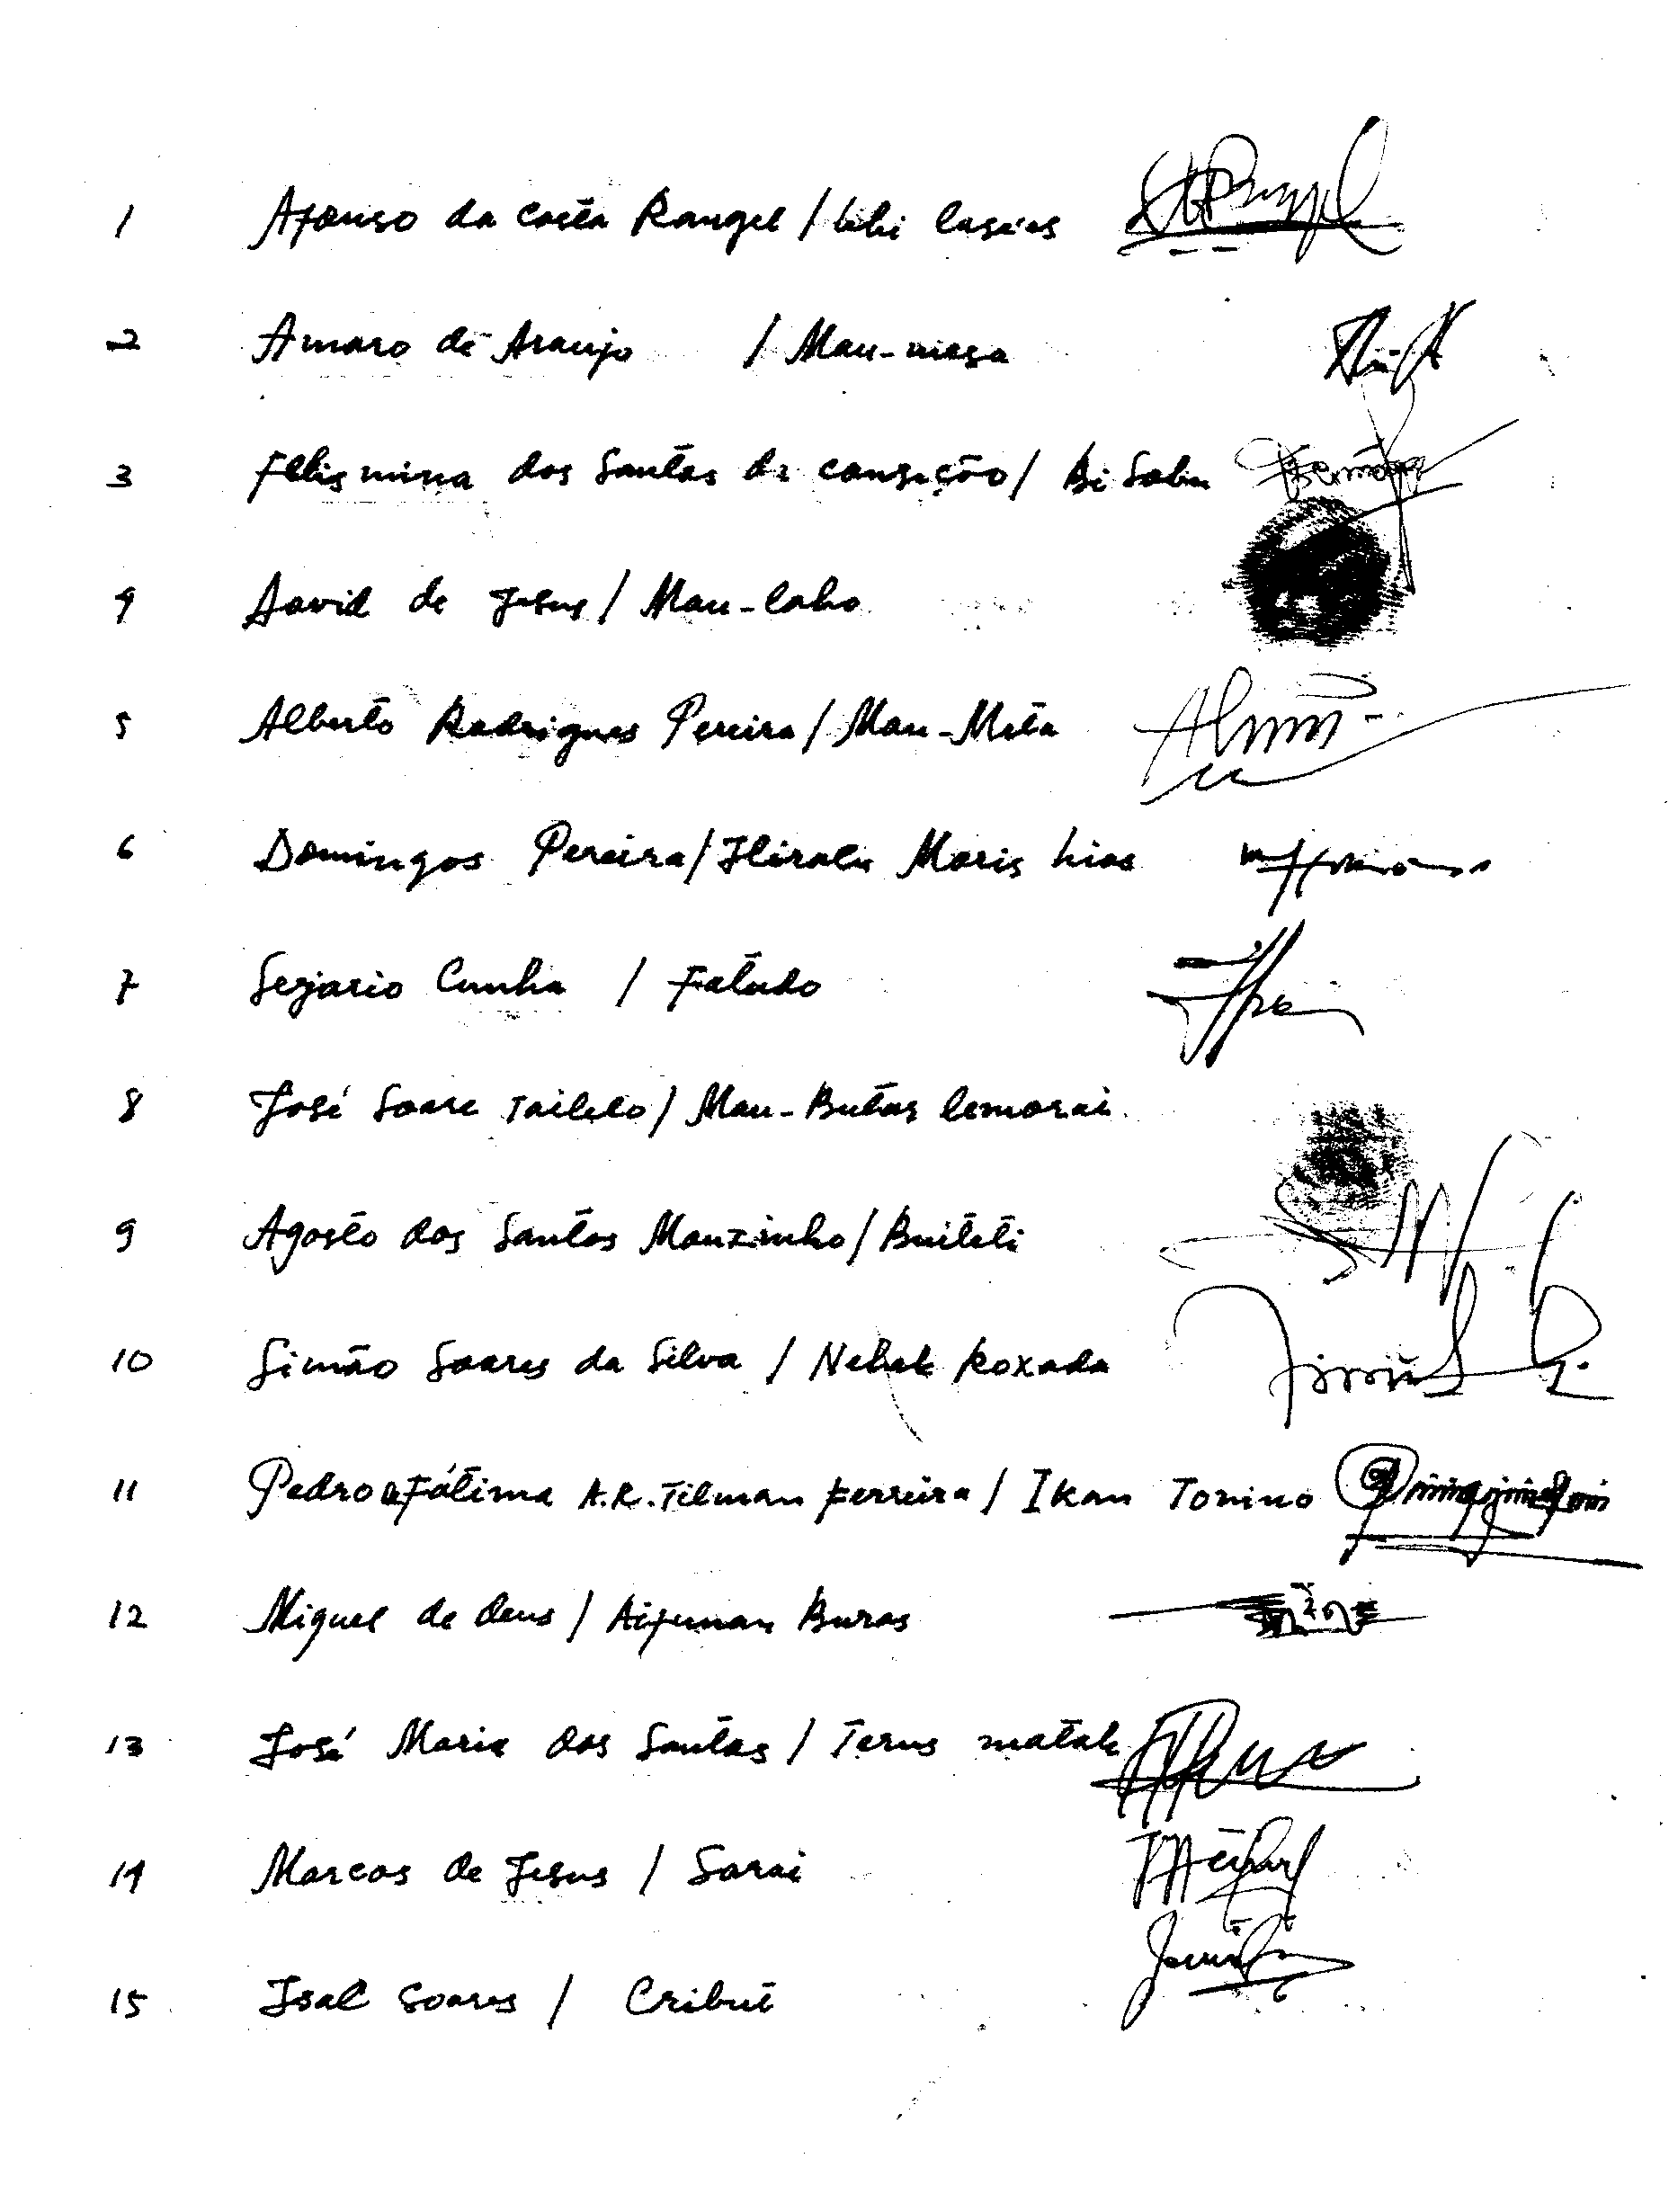 1 Afonso da Costa Rangel / Lasáes
2 Amaro de Araujo / Mau-mesa
3 Felismina dos Santos da conseição / Bi Saby
4 David de Jesus / Mau-laho
5 Alberto Rodrigues Pereira / Mau-Meta
6 Domingos Pereira / Maris hias
7 Serjario Cunha / Faludo
8 José Soare Tailelo / Mau-Butar lemorai
9 Agosto dos Santos Mauzinho / Buileti
10 Simão Soares da Silva / Nehek Roxada
11 Pedro de Fátima A.R. Tilman Ferreira / Ikan Tonino
12 Miguel de deus / Buras
13 José Maria dos Santos / Terus matak
14 Marcos de Jesus / Sarai
15 Isac Soares / Cribut